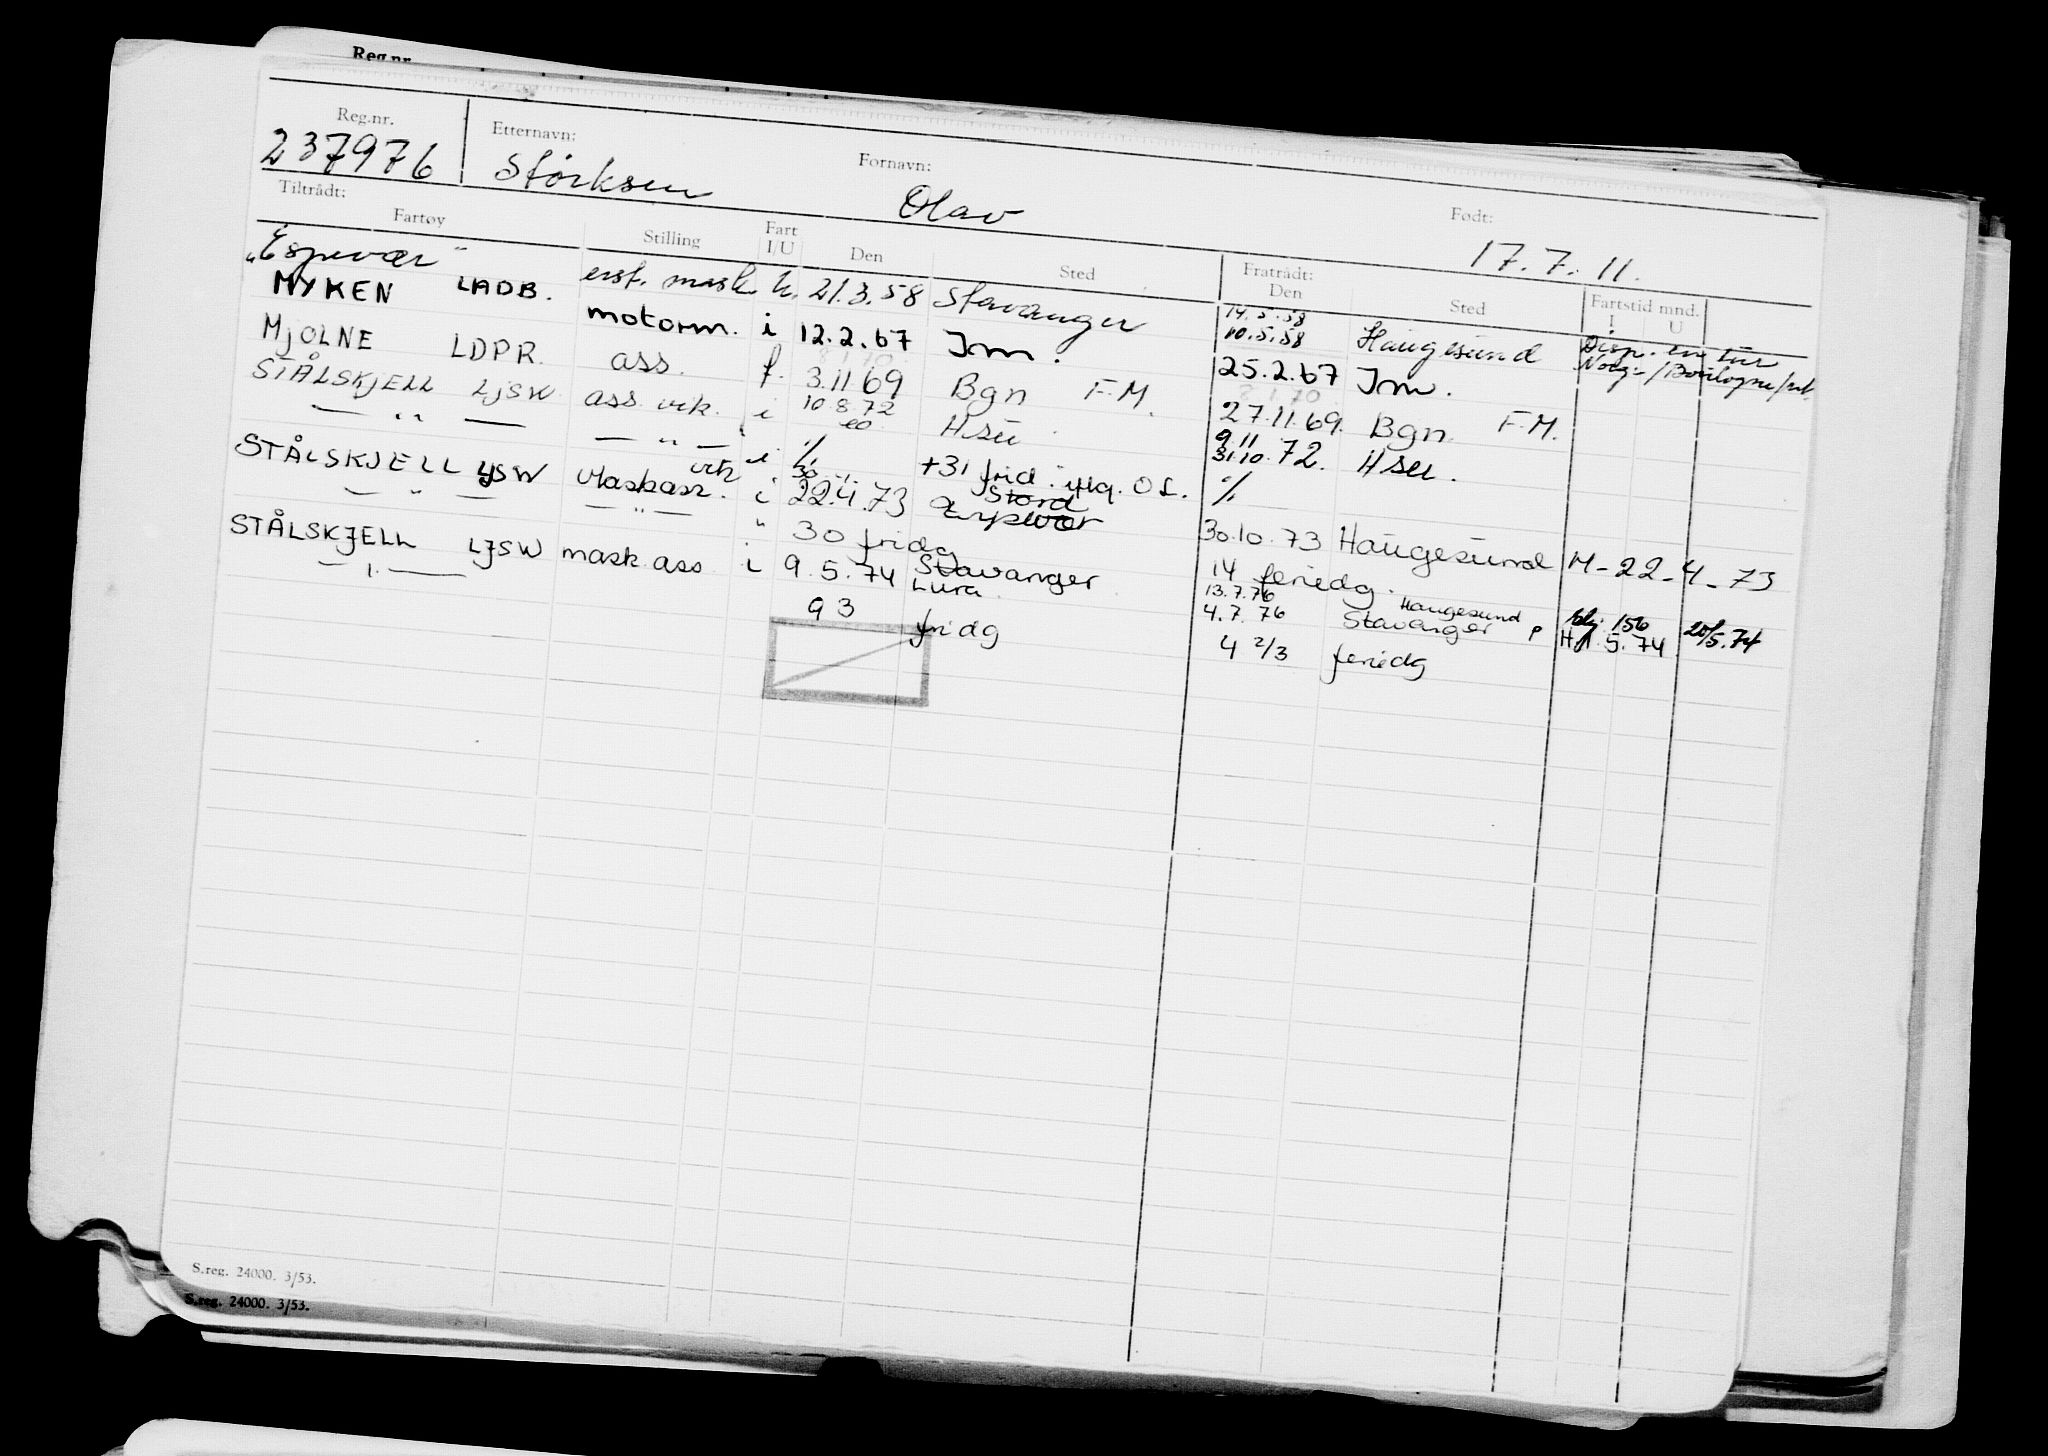 Reg.nr.
Reg.nr. Etternavn: Fornavn: Født:
237976 Størksen Olav 17.7.11.
Tiltrådt: Fratrådt:
Fartøy Stilling Fart I/U Den Sted Den Sted Fartstid mnd. I U
"Espevær" erst. mask. u. 21.3.58 Stavanger 14.5.58 10.5.58 Haugesund Disp. en tur Norge/Boulogne/
MYKEN LADB. motorm. i 12.2.67 Jrn. 25.2.67 Jrn.
MJOLNE LDPR. ass. f. 3.11 69 Bgn F.M. 27.11.69. Bgn F.M.
STÅLSKJELL LJSW ass vik. i 10.8.72 Hsu 9.11 31.10.72. Hsu.
— " — — " — ./. +31 frid. O L. ./.
STÅLSKJELL LJSW Maskass. vik i 30 22.4.73 Stord Espevær 30.10.73 Haugesund M-22-4-73
— " — — " — " 30 fridg 14 feriedg.
STÅLSKJELL LJSW mask.ass i 9.5.74 Stavanger Lura 13.7.76 4.7.76 Haugesund Stavanger P 156 H 5.74 20/5.74
— " — 93 fridg 4 2/3 feriedg
S.reg. 24000. 3/53.
S.reg. 24000. 3/53.